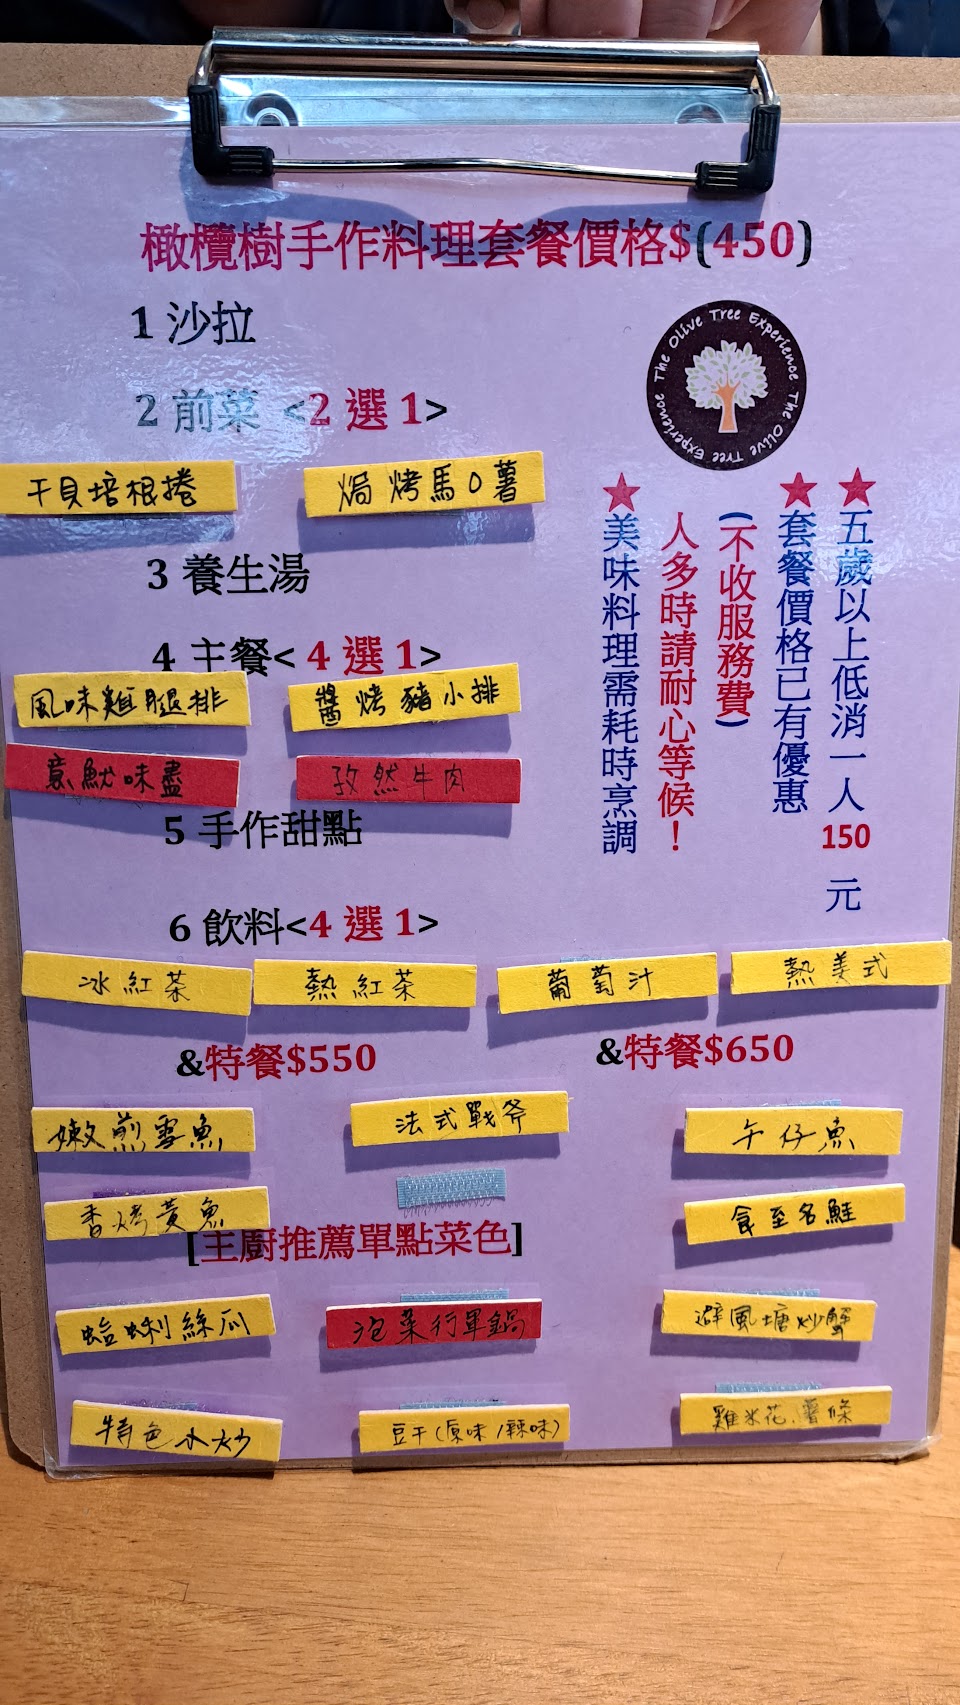 橄欖樹手作料理套餐價格$(450)
1 沙拉
The Olive Tree Experience The Olive Tree Experience
2 前菜 <2 選 1>
干貝培根捲
焗烤馬0薯
3 養生湯
4 主餐<4 選 1>
風味雞腿排
醬烤豬小排
意魷味盡
孜然牛肉
5 手作甜點
6 飲料<4 選 1>
冰紅茶
熱紅茶
葡萄汁
熱美式
★五歲以上低消一人 150 元
★套餐價格已有優惠
(不收服務費)
人多時請耐心等候！
★美味料理需耗時烹調
&特餐$550
&特餐$650
嫩煎雪魚
法式戰斧
午仔魚
香烤黃魚
食至名鮭
[主廚推薦單點菜色]
蛤蜊絲瓜
泡菜行軍鍋
避風塘炒蟹
特色小炒
豆干(原味/辣味)
雞米花、薯條